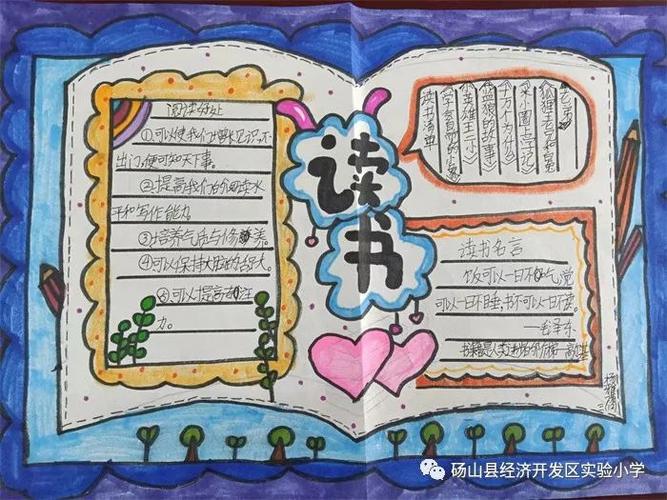 阅读好处
①可以使我们增长见识,不
出门,便可知天下事。
②提高我们的阅读水
平和写作能力
③培养气质与修养。
④可以保持大脑的活力。
⑤可以提高注
力。
读书
读书清单
《英雄王子》
《孤狼的故事》
《十万个为什么》
《米小圈上学记》
读书名言
饭可以一日不吃,觉
可以一日不睡,书不可以一日不读。
—毛泽东
书籍是人类进步的阶梯—高尔基
砀山县经济开发区实验小学